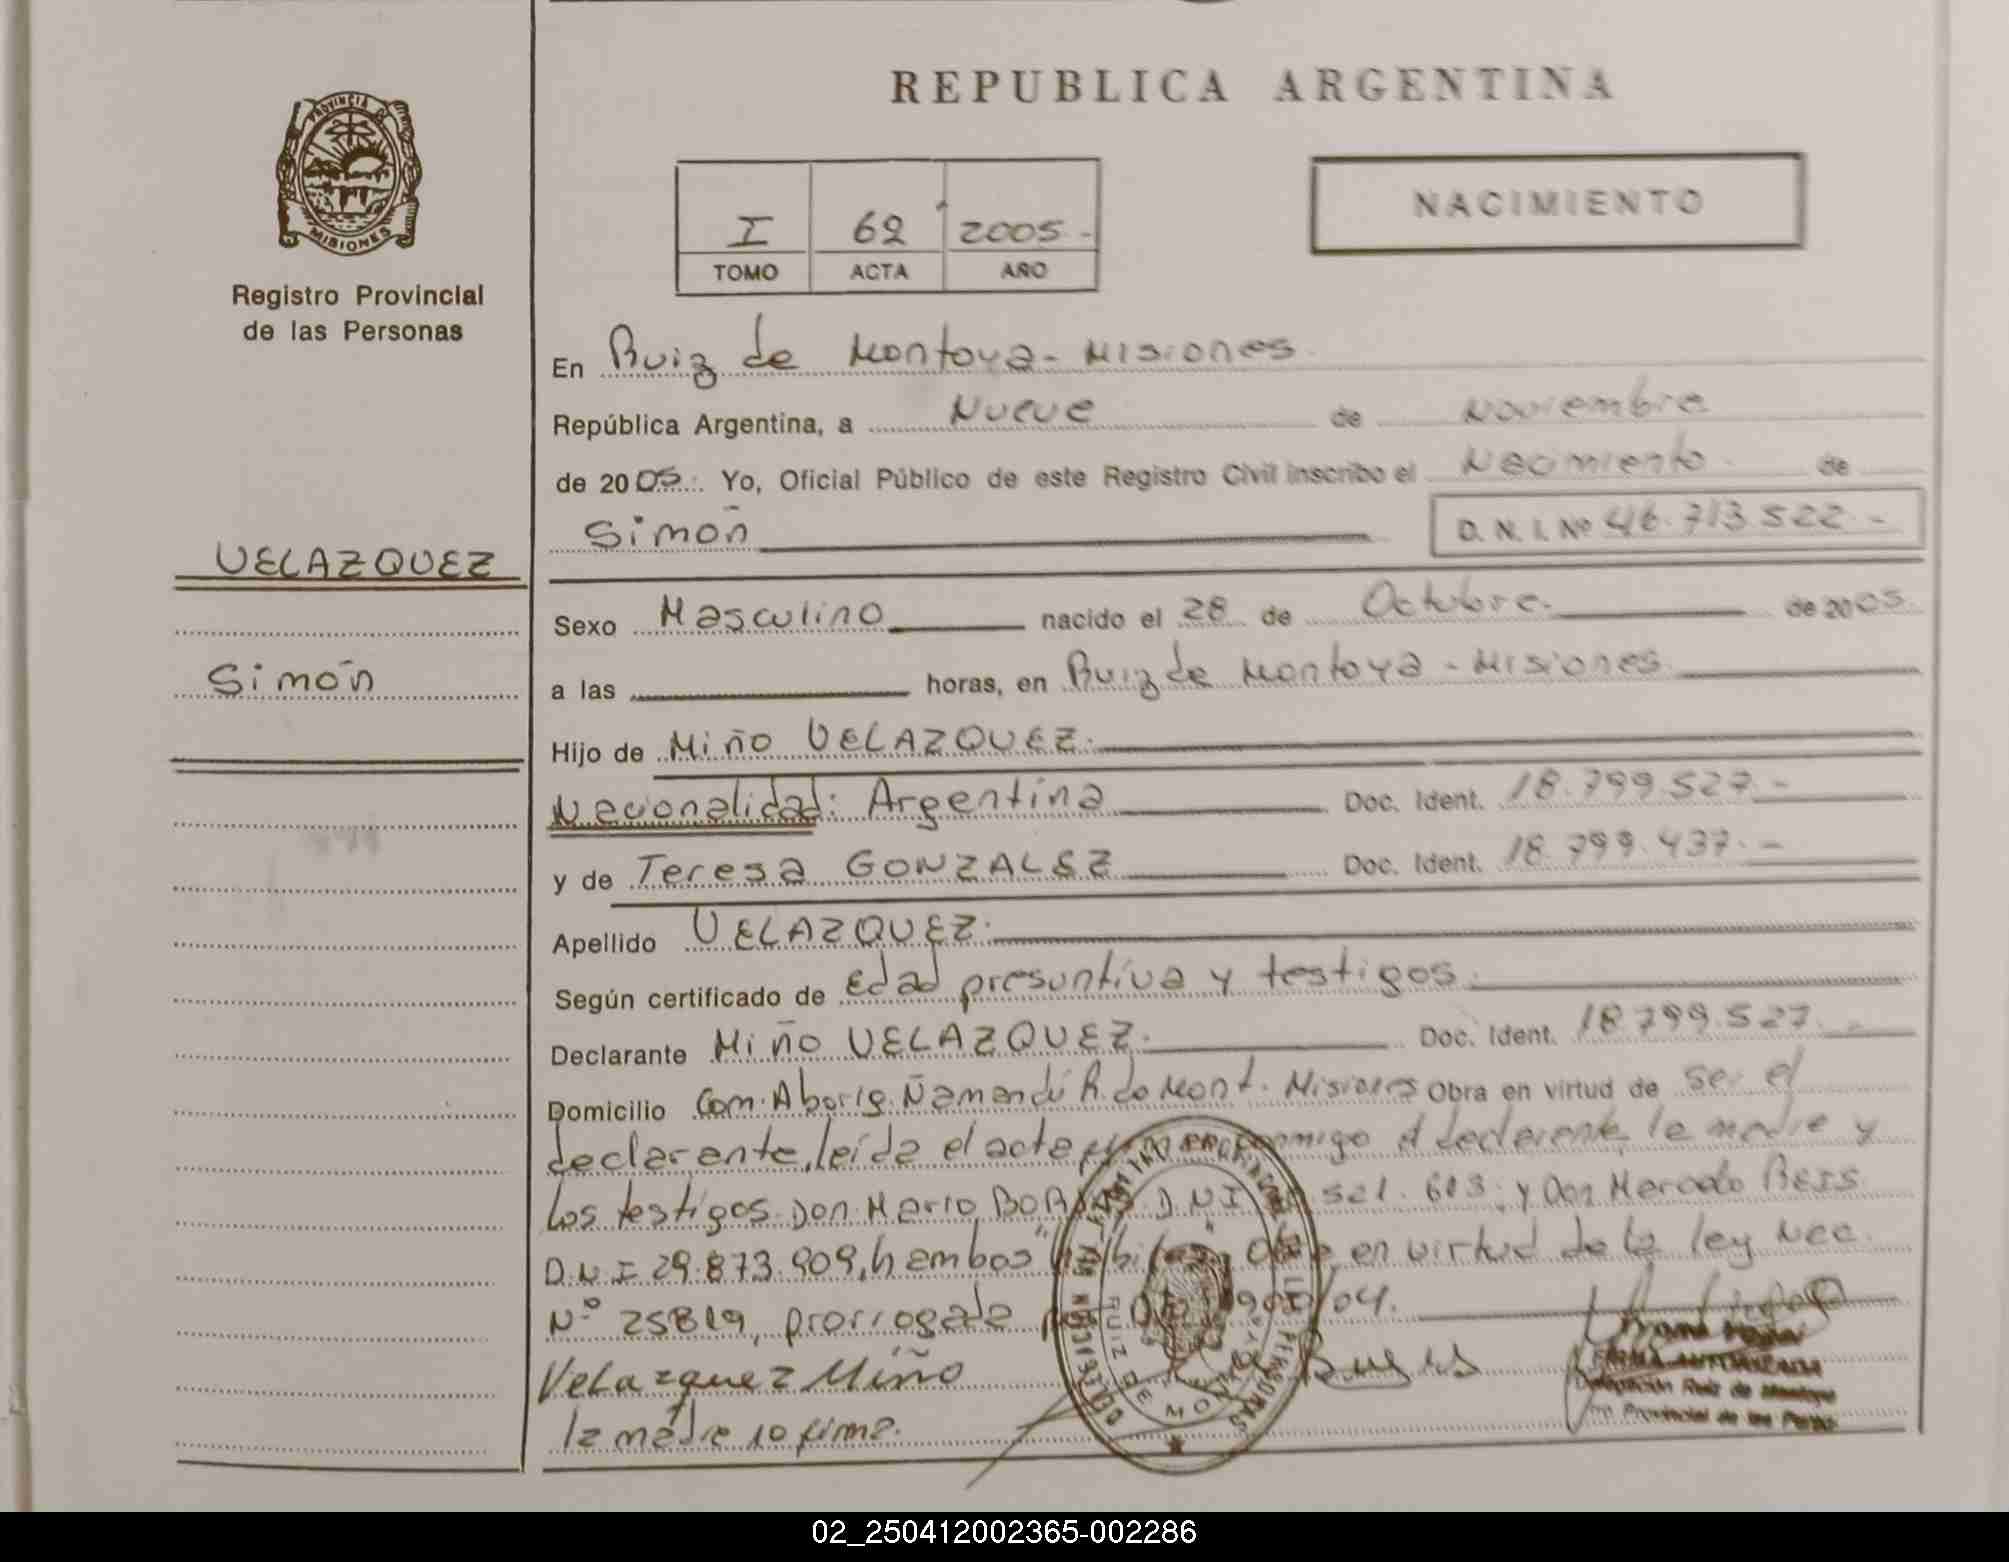 REPUBLICA ARGENTINA
PROVINCIA DE
MISIONES
Registro Provincial
de las Personas
I 62 2005.-
TOMO ACTA AÑO
NACIMIENTO
En Ruiz de Montoya - Misiones.
República Argentina, a Nueve de Noviembre
de 2005. Yo, Oficial Público de este Registro Civil inscribo el Nacimiento de
Simón
D. N. I. Nº 46.713.522.-
VELAZQUEZ
Simón
Sexo Masculino nacido el 28 de Octubre. de 2005.
a las horas, en Ruiz de Montoya - Misiones.
Hijo de Miño VELAZQUEZ.
Nacionalidad: Argentina Doc. Ident. 18.799.527.-
y de Teresa GONZALEZ Doc. Ident. 18.799.437.-
Apellido VELAZQUEZ.
Según certificado de edad presuntiva y testigos.
Declarante Miño VELAZQUEZ. Doc. Ident. 18.799.527.-
Domicilio Com. Aborig. Ñamandú R. de Mont. Misiones Obra en virtud de ser el
declarante, leída el acta conmigo el declarante, la madre y
los testigos Don Mario D.N.I 521.613. y Don Mercelo
D.N.I 29.873.909, en virtud de la ley Nac.
Nº 25819, prorrogada /04.
Velazquez Miño
la madre no firma.
FIRMA AUTORIZADA
Delegación Ruiz de Montoya
Provincial de las Perso
RUIZ DE MONTOYA
02_250412002365-002286